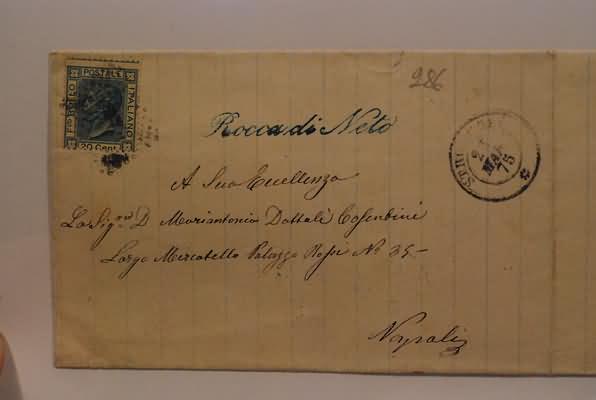 FCO BOLLO
POSTALE
ITALIANO
20 Cent.
286
Rocca di Neto
MAR
75
A Sua Eccellenza
La Sigra D. Mariantonia Dattali Cosentini
Largo Mercatello Palazzo Rossi No 35-
Napoli